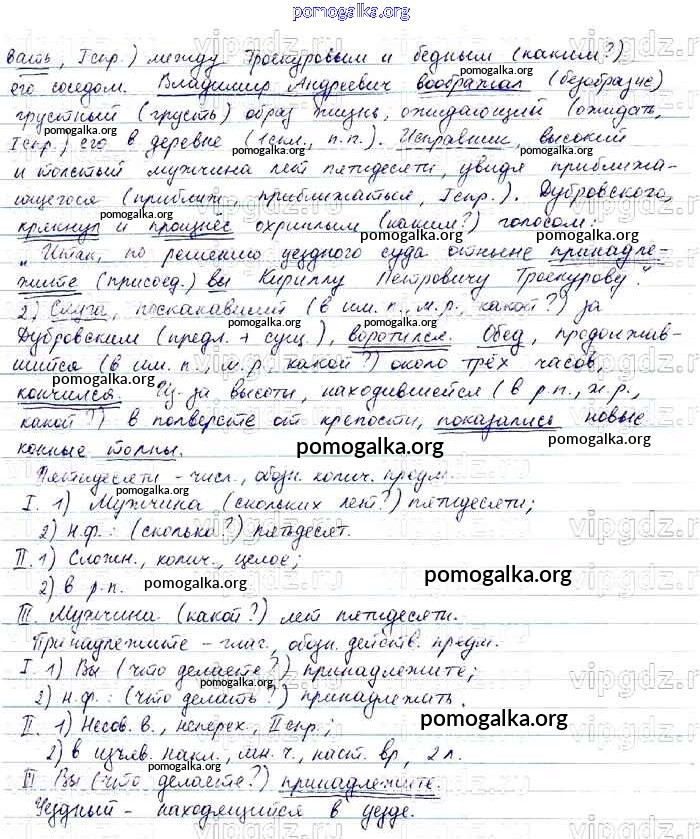 pomogalka.org
вать, I спр.) между Троекуровым и бедным (каким?)
его соседом. Владимир Андреевич воображал (безобразие)
pomogalka.org
грустный (грусть) образ жизнь, ожидающий (ожидать,
pomogalka.org
I спр.) его в деревне (1 скл., п.п.). Исправник, высокий
pomogalka.org
и толстый мужчина лет пятидесяти, увидя приближа-
ющегося (приближ, приближаться, I спр.). Дубровского,
pomogalka.org
крякнул и произнёс охриплым (каким?) голосом:
pomogalka.org
"Итак, по решению уездного суда отныне принадле-
жите (присоед.) вы Кириллу Петровичу Троекурову".
2) Слуга, поскакавший (в им. п., м.р., какой?) за
pomogalka.org
Дубровским (предл. + сущ.), воротился. Обед, продолжив-
шийся (в им. п., м.р. какой?) около трёх часов,
pomogalka.org
кончился. Из-за высоты, находившейся (в р.п., ж.р.,
pomogalka.org
какой?) в полверсте от крепости, показались новые
конные толпы.
pomogalka.org
Пятидесяти - числ., обозн. колич. предм.
pomogalka.org
I. 1) Мужчина (скольких лет?) пятидесяти;
2) н.ф.: (сколько?) пятьдесят.
II. 1) Сложн., колич., целое;
pomogalka.org
2) в р.п.
pomogalka.org
III. Мужчина (какой?) лет пятидесяти.
Принадлежите - глаг., обозн. действ. предм.
I. 1) Вы (что делаете?) принадлежите;
pomogalka.org
2) н.ф.: (что делать?) принадлежать.
II. 1) Несов. в., неперех., II спр.;
pomogalka.org
2) в изъяв. накл., мн. ч., наст. вр., 2 л.
pomogalka.org
III Вы (что делаете?) принадлежите.
Уездный - находящийся в уезде.
vipgdz.ru